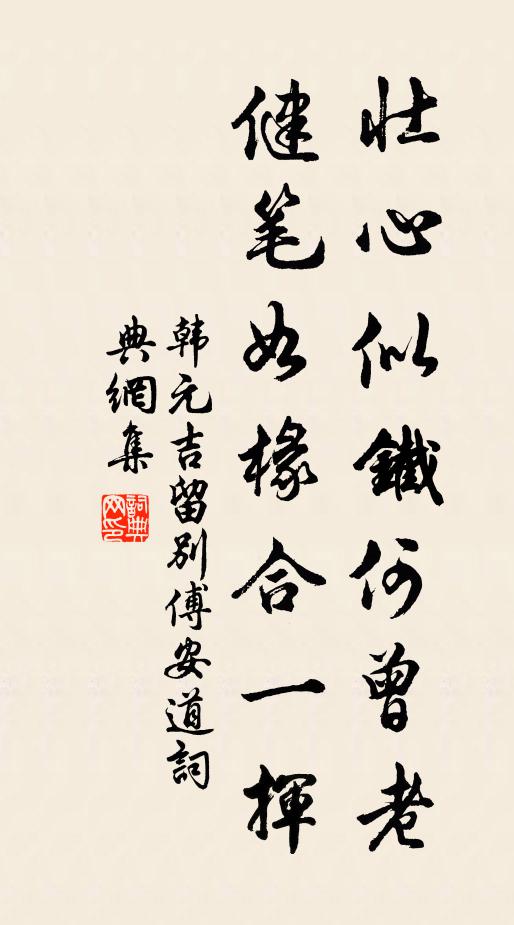 壮心似鐵何曾老
健笔如椽合一揮
韩元吉留别傅安道詞
典網集
詞典网印